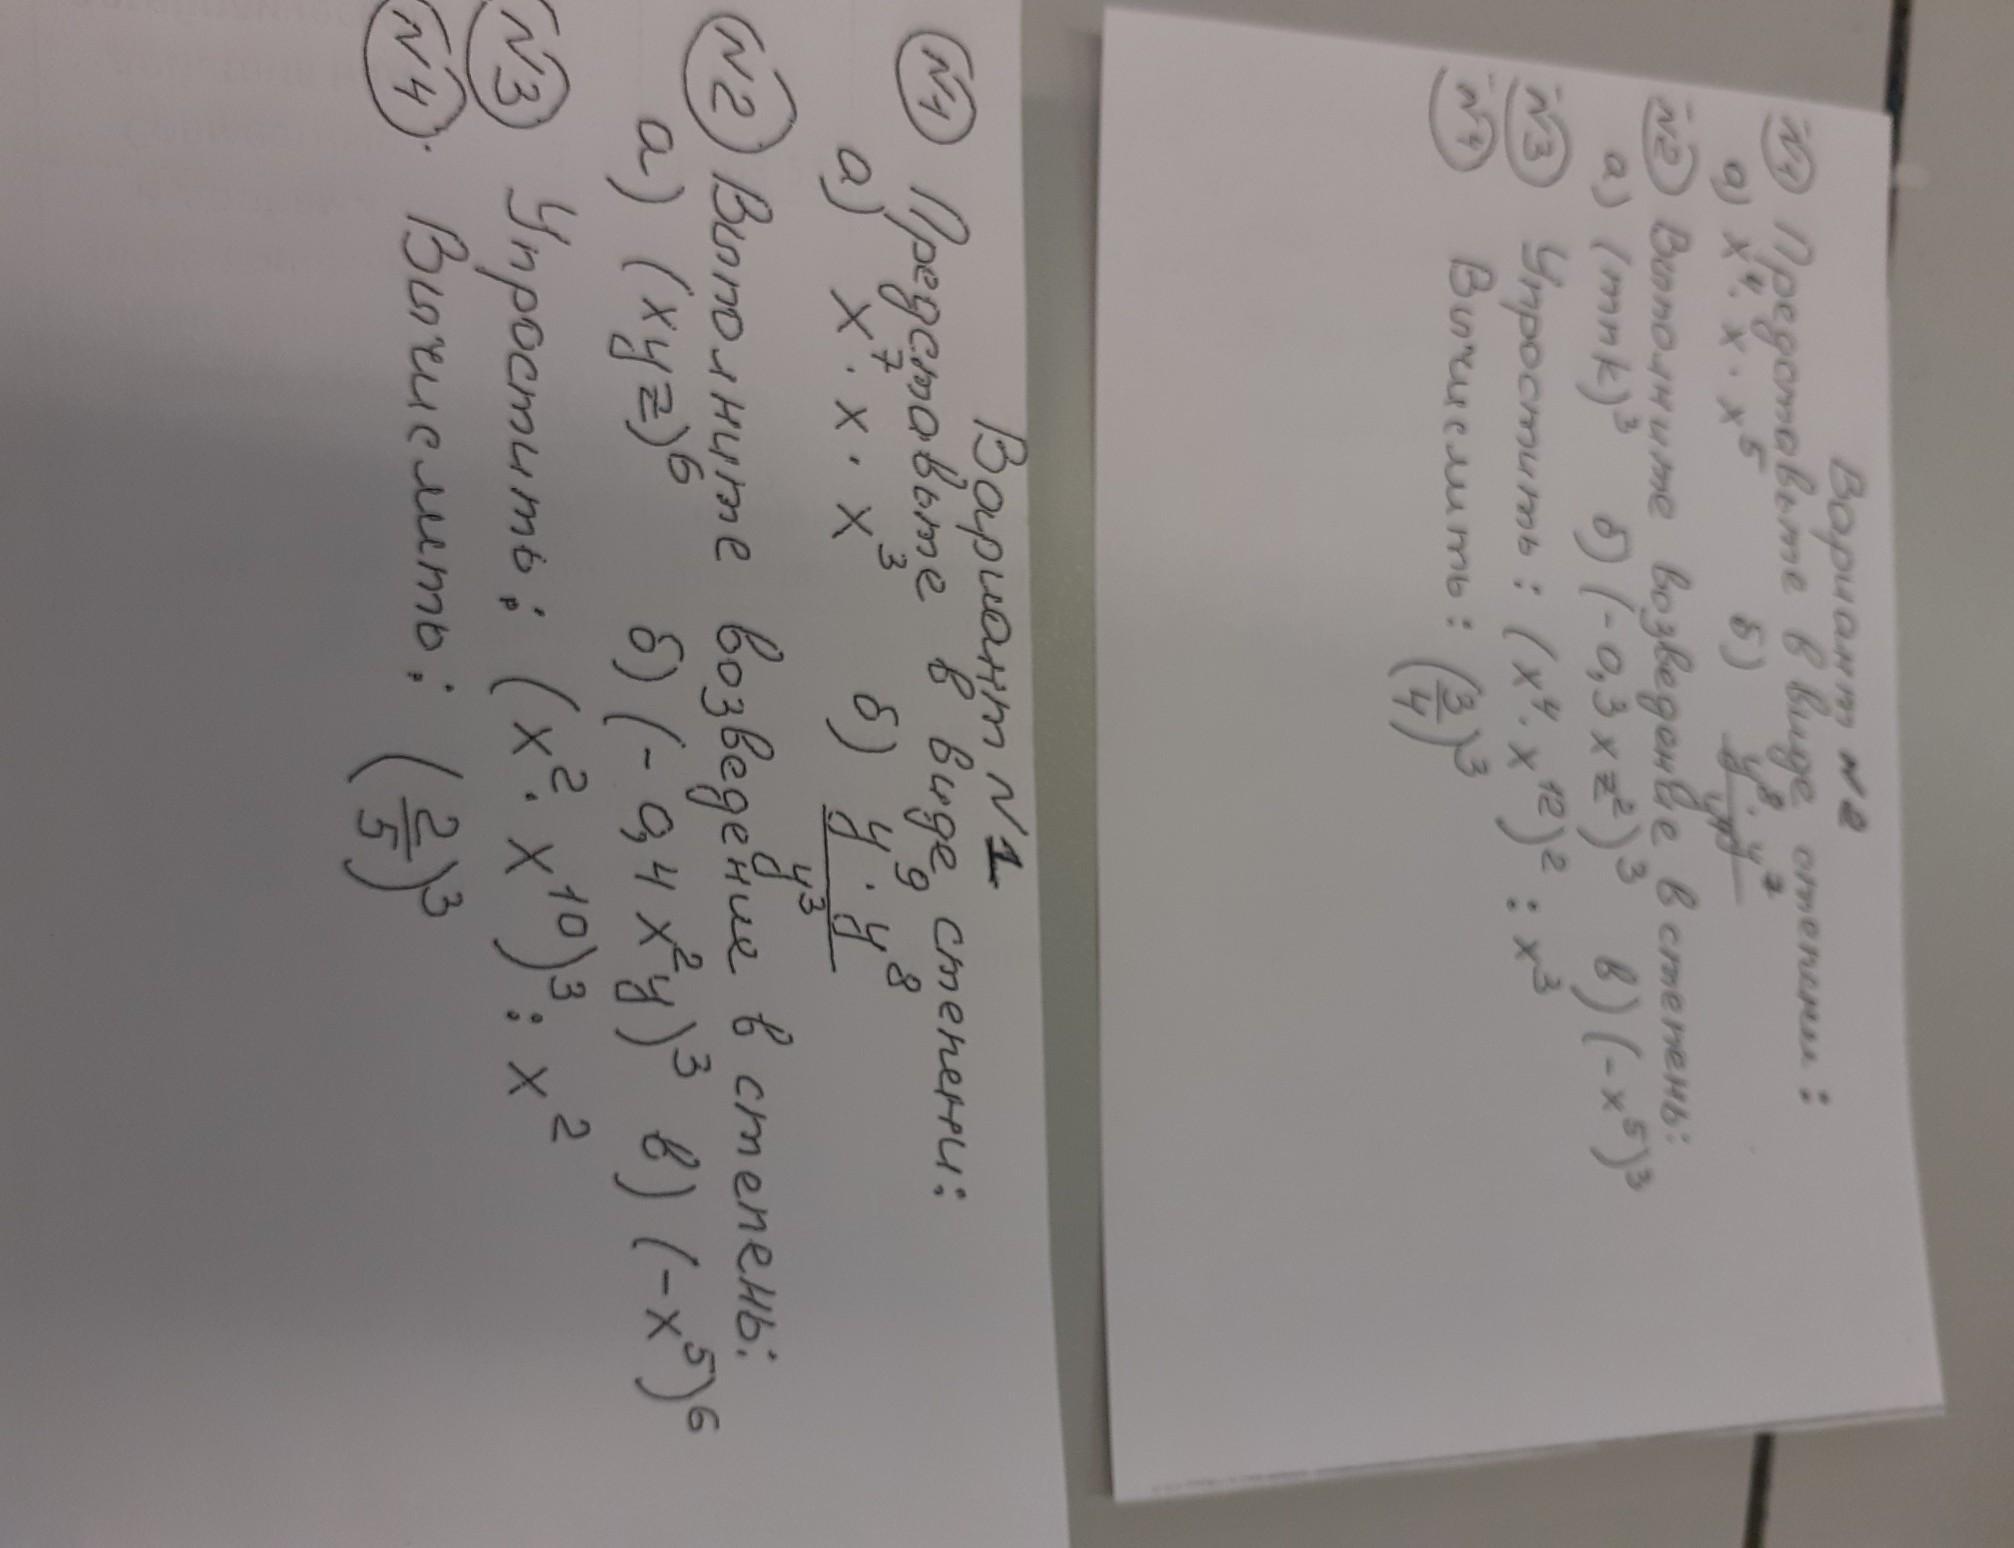 Вариант №2
№1 Представьте в виде степени:
а) x⁴ · x · x⁵ б) y⁸ · y⁷
№2 Выполните возведение в степень:
а) (mnk)³ б) (-0,3xz²)³ в) (-x⁵)³
№3 Упростить: (x⁴ · x¹²)² : x³
№4 Вычислить: (3/4)³
Вариант №1
№1 Представьте в виде степени:
а) x⁷ · x · x³ б) y⁹ · y⁸ / y³
№2 Выполните возведение в степень:
а) (xyz)⁶ б) (-0,4x²y)³ в) (-x⁵)⁶
№3 Упростить: (x² · x¹⁰)³ : x²
№4. Вычислить: (2/5)³